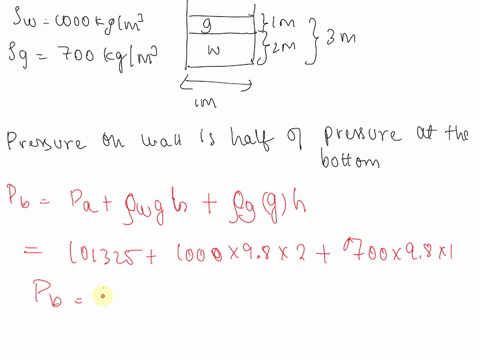 ρw = 1000 kg/m³
ρg = 700 kg/m³
g
w
1m
2m
3m
1m
Pressure on wall is half of pressure at the
bottom
Pb = Pa + ρwgh + ρg(g)h
= 101325 + 1000 × 9.8 × 2 + 700 × 9.8 × 1
Pb =